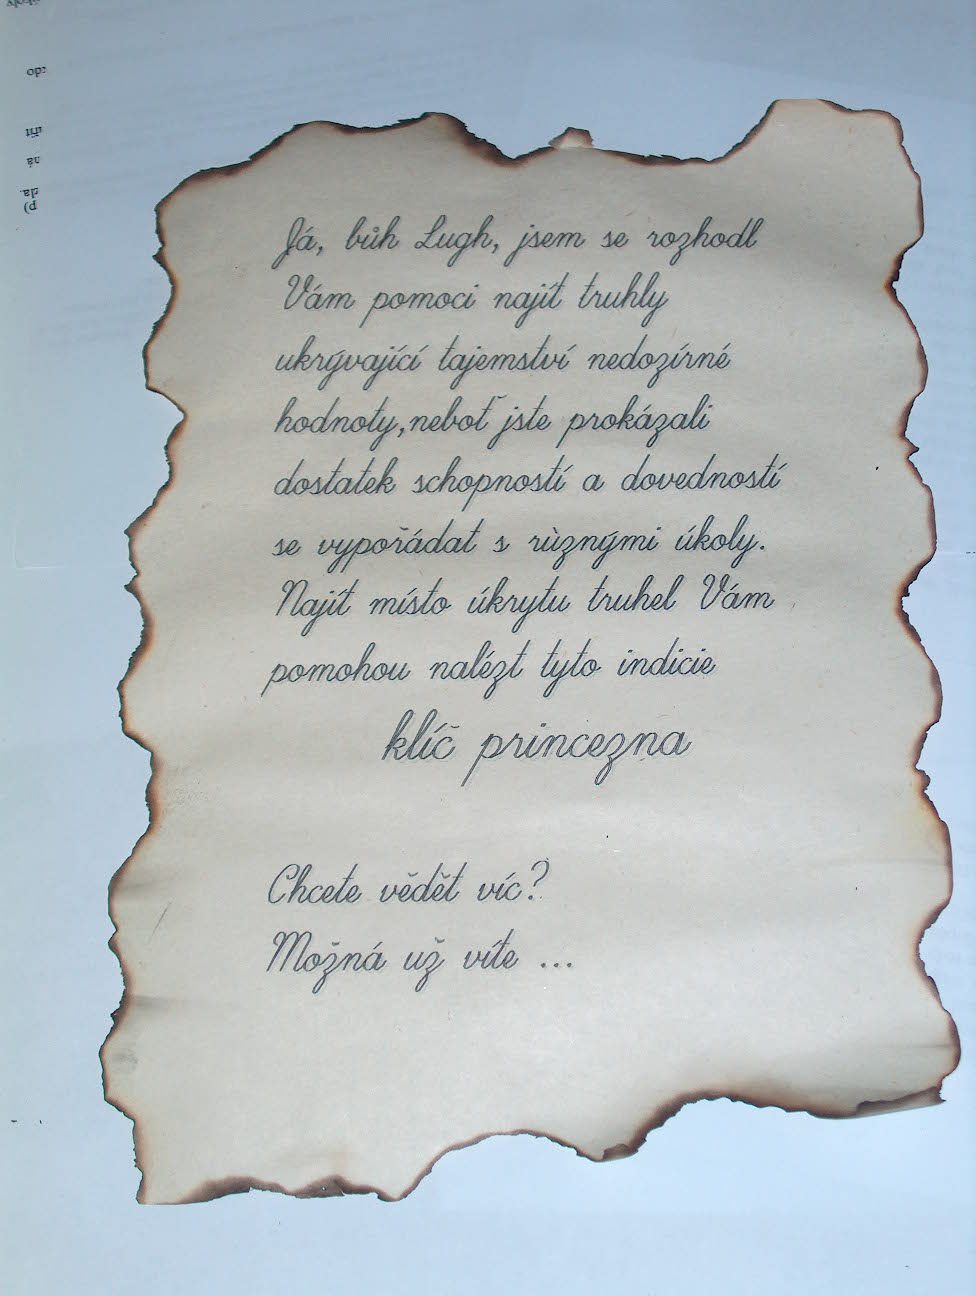 Já, bůh Lugh, jsem se rozhodl
Vám pomoci najít truhly
ukrývající tajemství nedozírné
hodnoty,neboť jste prokázali
dostatek schopností a dovedností
se vypořádat s rùznými úkoly.
Najít místo úkrytu truhel Vám
pomohou nalézt tyto indicie
klíč princezna
Chcete vědět víc?
Možná už víte ...